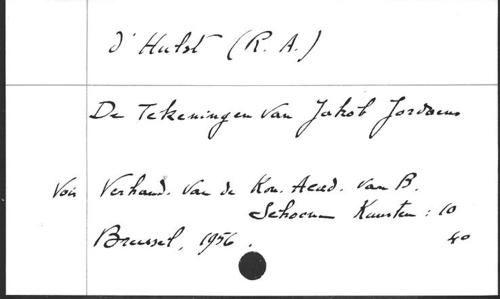 d'Hulst (R. A.)
De Tekeningen van Jakob Jordaens
Voir Verhand. van de Kon. Acad. van B.
Schoone Kunsten : 10
Brussel, 1956.
40